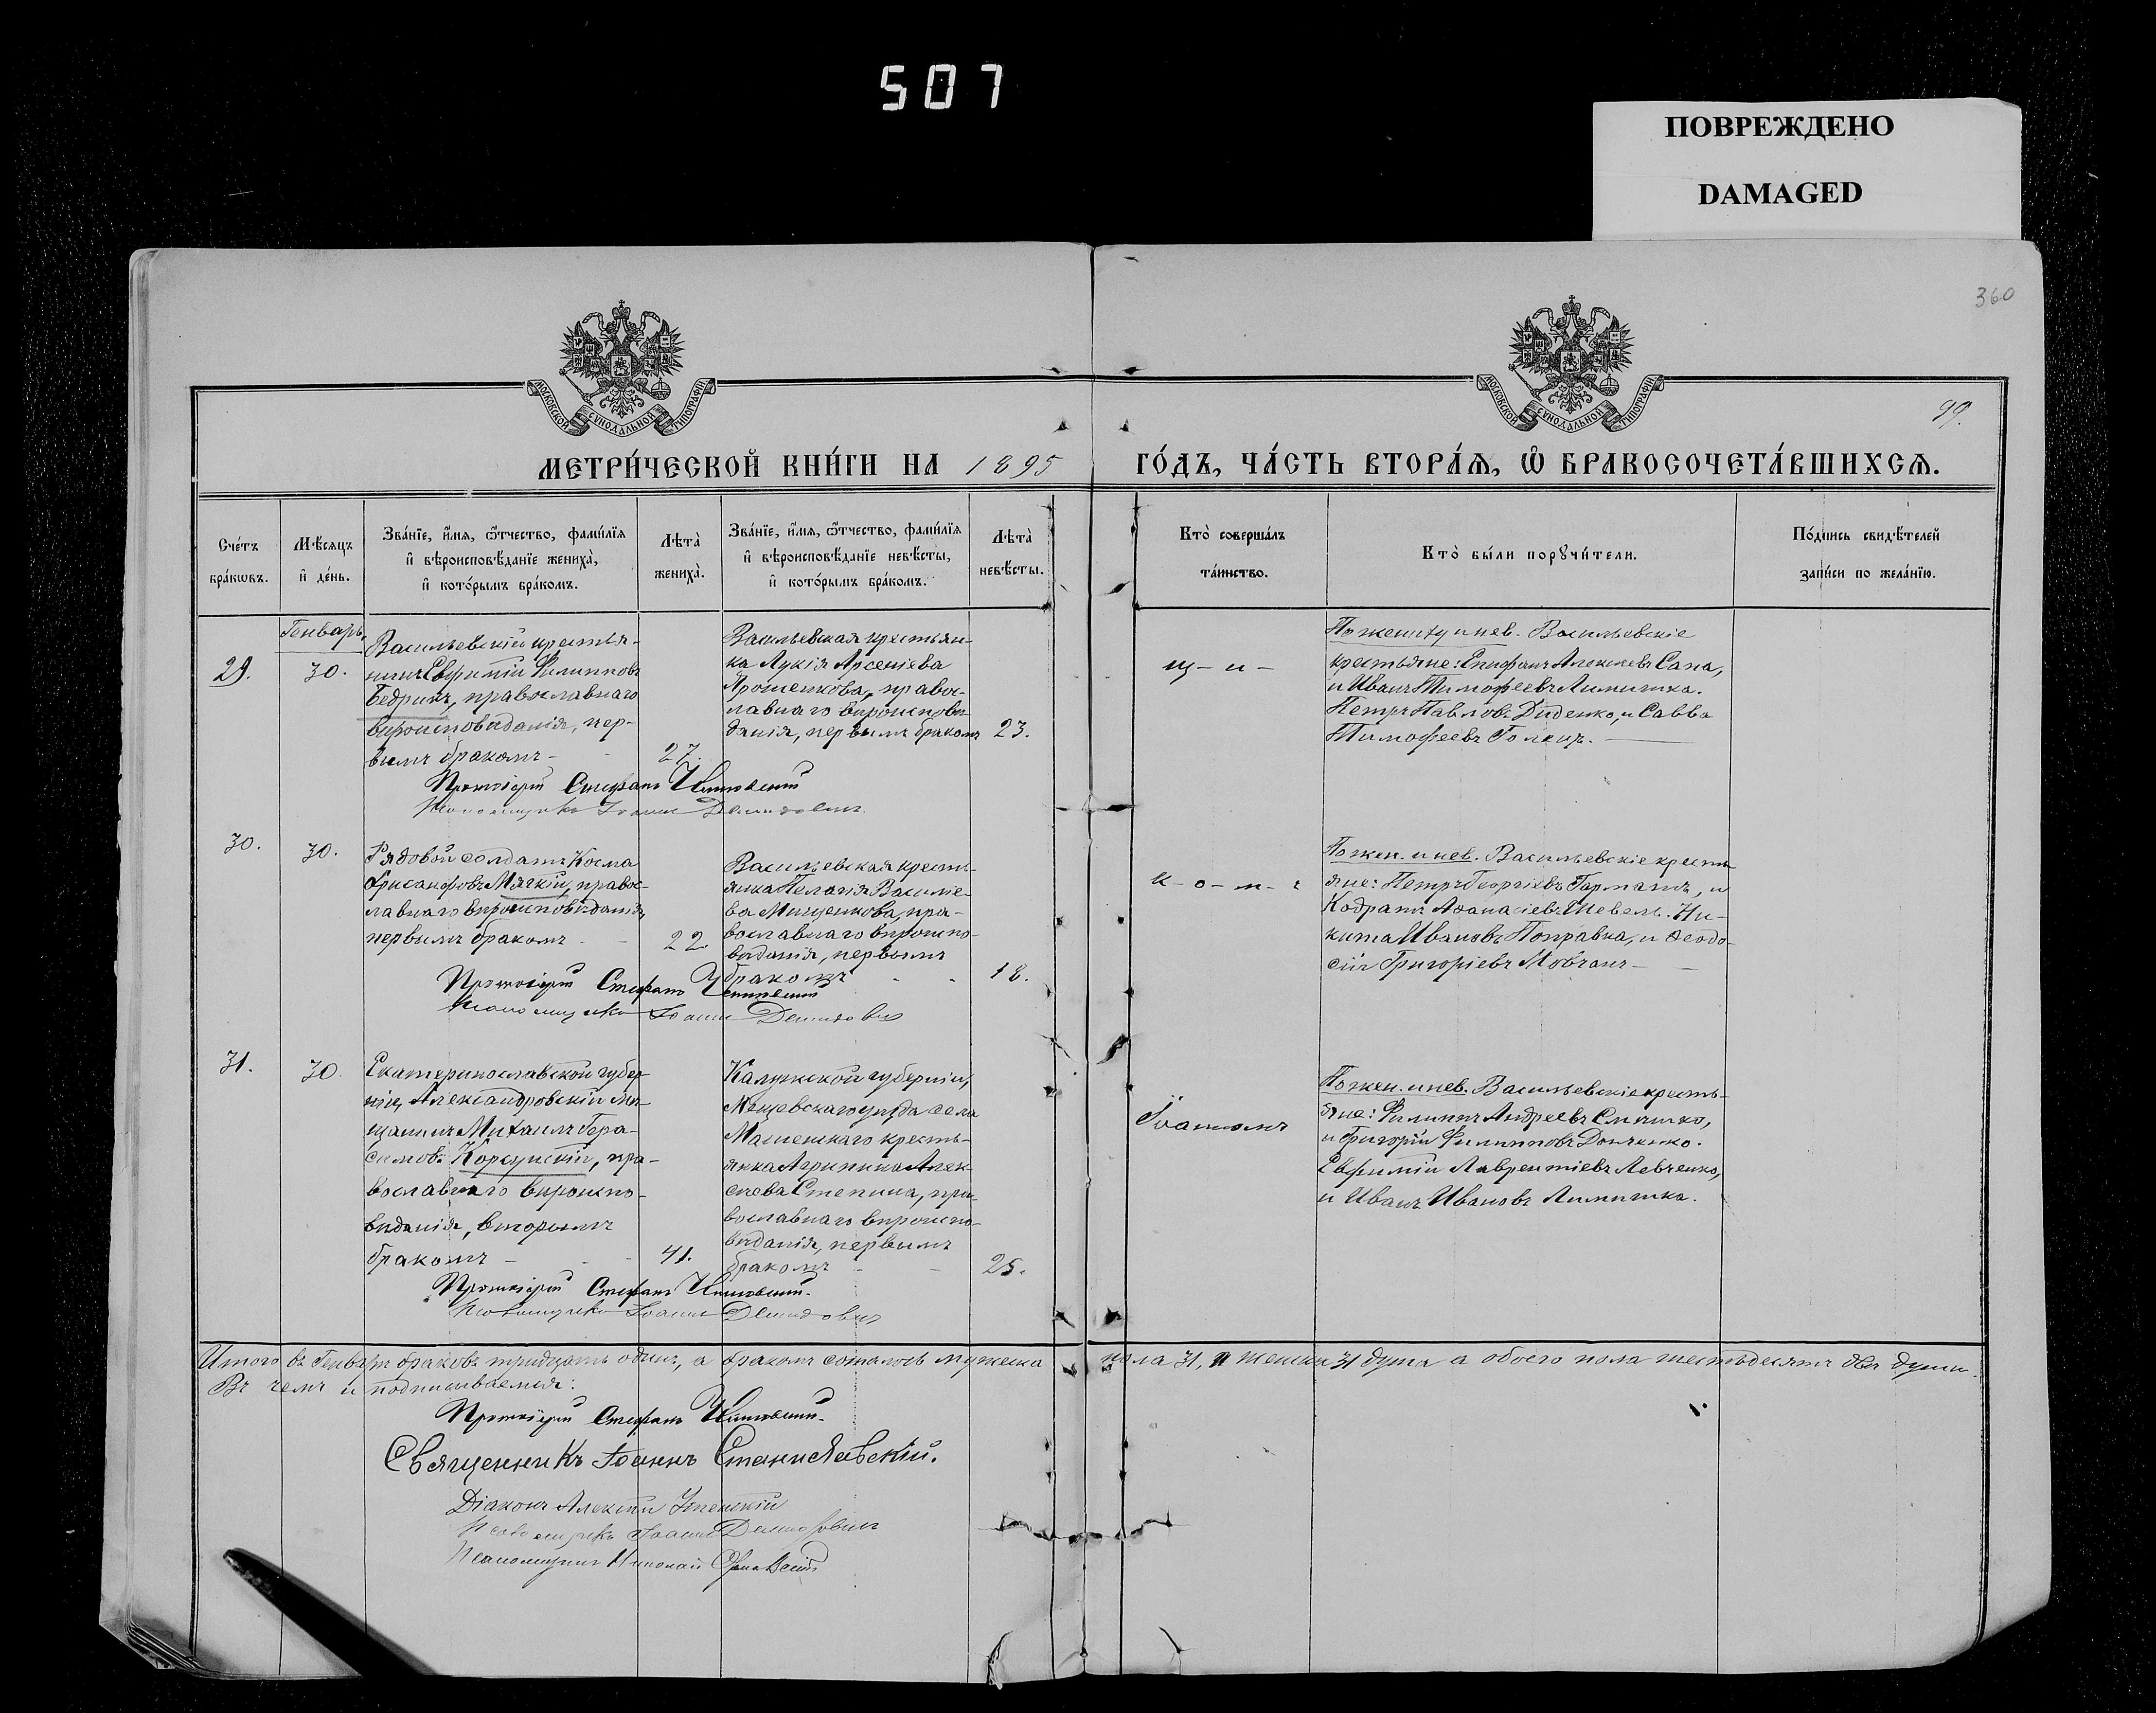 507
ПОВРЕЖДЕНО
DAMAGED
360
МОСКОВСКОЙ СѴНОДАЛЬНОЙ ТИПОГРАФІИ
МОСКОВСКОЙ СѴНОДАЛЬНОЙ ТИПОГРАФІИ
99.
МЕТРИ́ЧЕСКОЙ КНИ́ГИ НА 1895
ГО́ДЪ, ЧА́СТЬ ВТОРА́Я, Ѽ БРАКОСОЧЕТА́ВШИХСѦ.
Сче́тъ
бра́кѡвъ.
Мѣ́сѧцъ
и҆ де́нь.
Зва́нїе, и҆́мѧ, ѻ҆́тчество, фами́лїѧ
и҆ вѣроисповѣ́данїе жениха̀,
и҆ кото́рымъ бра́комъ.
Лѣта̀
жениха̀.
Зва́нїе, и҆́мѧ, ѻ҆́тчество, фами́лїѧ
и҆ вѣроисповѣ́данїе невѣ́сты,
и҆ кото́рымъ бра́комъ.
Лѣта̀
невѣ́сты.
Кто̀ соверша́лъ
та́инство.
Кто̀ бы́ли порꙋчи́тели.
По́дпись свидѣ́телей
за́писи по жела́нїю.
29.
Генварь,
30.
Васильевскій крестья-
нинъ Евфимій Филипповъ
Бедрикъ, православнаго
вѣроисповѣданія, пер-
вымъ бракомъ -
27.
Васильевская крестьян-
ка Лукія Арсеніева
Ярошенкова, правос-
лавнаго вѣроисповѣ-
данія, первымъ бракомъ
23.
Протоіерей Стефанъ
Псаломщикъ Іоаннъ Демидовичъ
щ - и -
По жениху и нев. Васильевскіе
крестьяне: Епифанъ Алексѣевъ Сапа,
и Иванъ Тимофеевъ Лимишка.
Петръ Павловъ Диденко, и Савва
Тимофеевъ Голецъ.
30.
30.
Рядовой солдатъ Косма
Хрисанфовъ Мягкій, правос-
лавнаго вѣроисповѣданія,
первымъ бракомъ
22
Васильевская кресть-
янка Пелагія Василіе-
ва Мищенкова, пра-
вославнаго вѣроиспо-
вѣданія, первымъ
бракомъ
18.
Протоіерей Стефанъ
Псаломщикъ Іоаннъ Демидовичъ
к - о - м - ъ
По жен. и нев. Васильевскіе кресть-
яне: Петръ Георгіевъ Гармашъ, и
Кодратъ Аѳанасіевъ Шевель. Ни-
кита Ивановъ Поправка, и Ѳеодо-
сій Григоріевъ Мовчанъ -
31.
30
Екатеринославской губер-
ніи, Александровскій мѣ-
щанинъ Михаилъ Гера-
симовъ Корсунскій, пра-
вославнаго вѣроиспо-
вѣданія, вторымъ
бракомъ -
41.
Калужской губерніи,
Мещевскаго уѣзда села
крестьь-
янка Агрипина Алек-
сѣева Степина, пра-
вославнаго вѣроиспо-
вѣданія, первымъ
бракомъ
25.
Протоіерей Стефанъ
Псаломщикъ Іоаннъ Демидовичъ
Іоанномъ
По жен. и нев. Васильевскіе кресть-
яне: Филиппъ Андреевъ Смишко,
и Григорій Филипповъ Донченко.
Евфимій Лаврентіевъ Левченко,
и Иванъ Ивановъ Лимишка.
Итого въ Генварѣ браковъ тридцать одинъ, а бракомъ сочталось мужеска пола 31, и женска 31 душа а обоего пола шестьдесятъ двѣ души.
Въ чемъ и подписываемся:
Протоіерей Стефанъ
Священникъ Іоаннъ Станиславскій.
Діаконъ Алексѣй Успенскій
Псаломщикъ Іоаннъ Демидовичъ
Псаломщикъ Николай